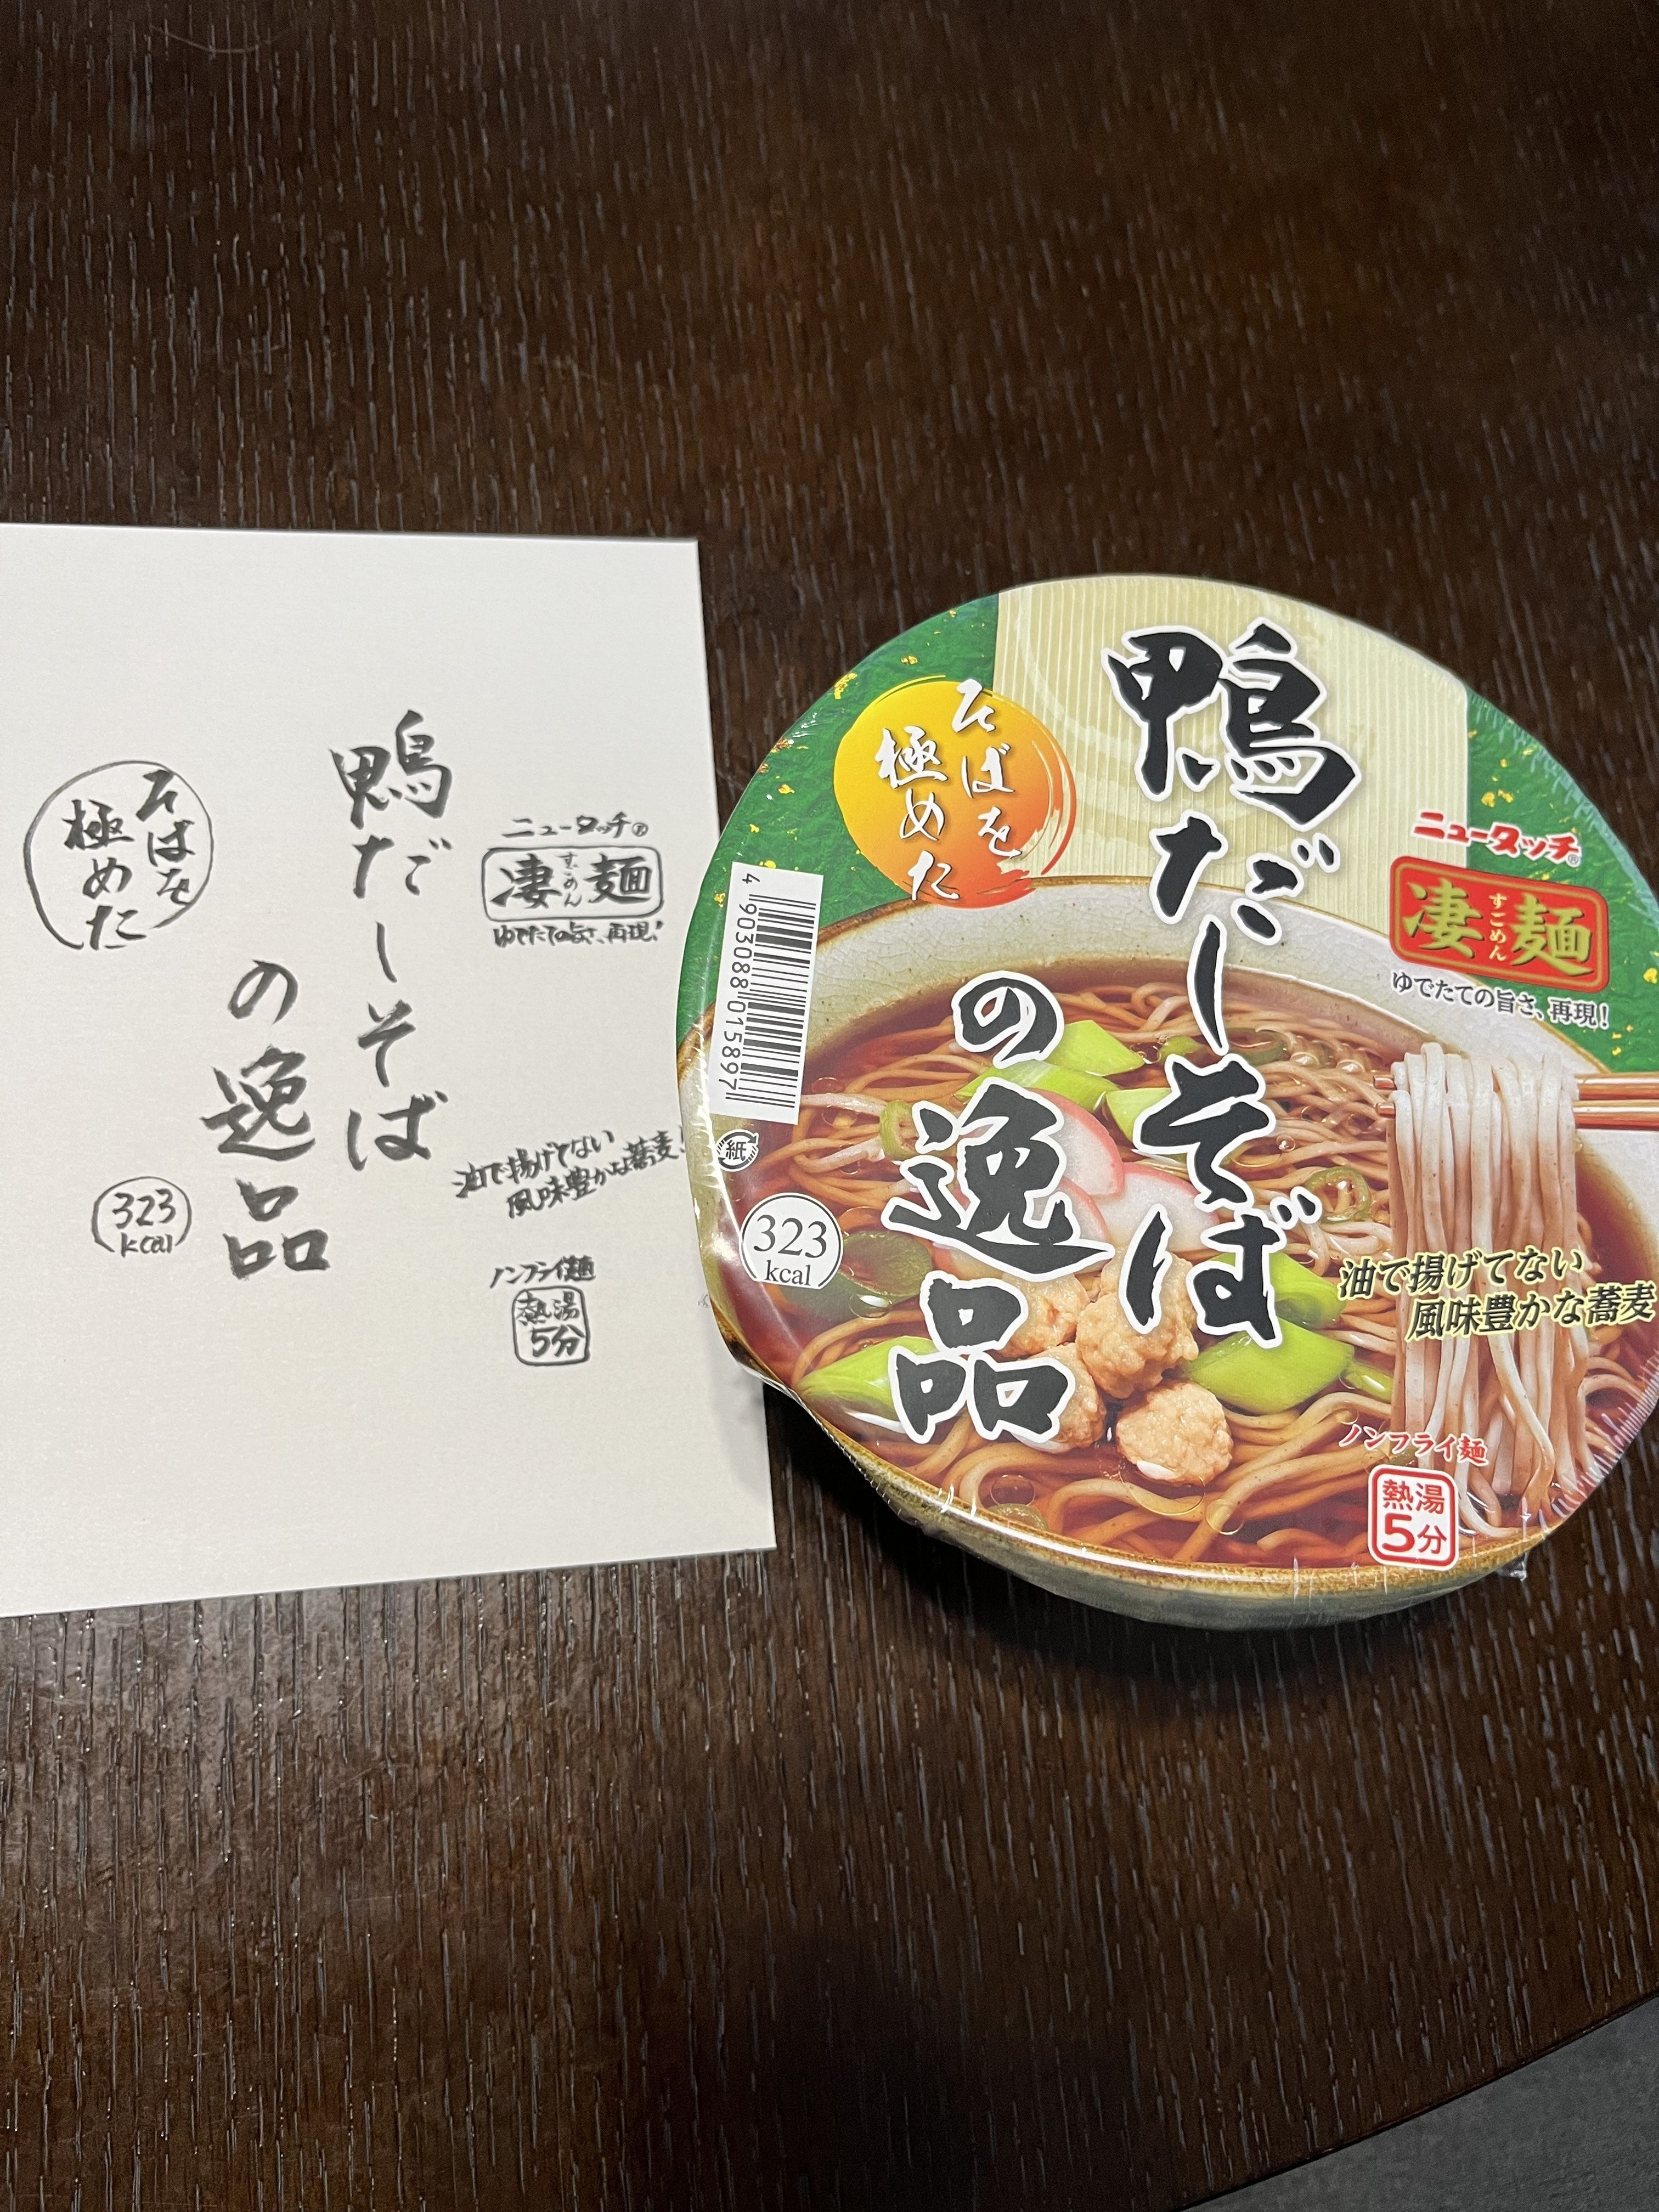 そばを
極めた
鴨だしそば
の逸品
ニュータッチ®
凄麺
すごめん
ゆでたての旨さ、再現!
油で揚げてない
風味豊かな蕎麦!
323
kcal
ノンフライ麺
熱湯
5分
そばを
極めた
鴨だしそば
の逸品
ニュータッチ®
凄麺
すごめん
ゆでたての旨さ、再現!
4 903088 015897
紙
323
kcal
油で揚げてない
風味豊かな蕎麦
ノンフライ麺
熱湯
5分